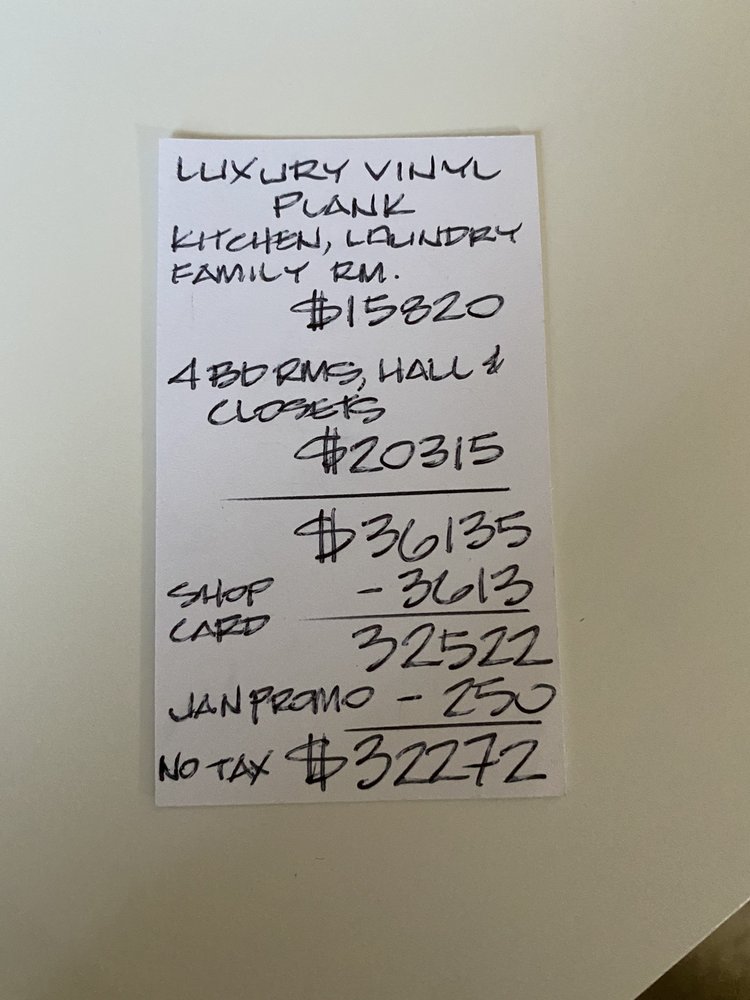 LUXURY VINYL
PLANK
KITCHEN, LAUNDRY
FAMILY RM.
$15820
4 BDRMS, HALL &
CLOSETS
$20315
$36135
SHOP - 3613
CARD
32522
JAN PROMO - 250
NO TAX $32272